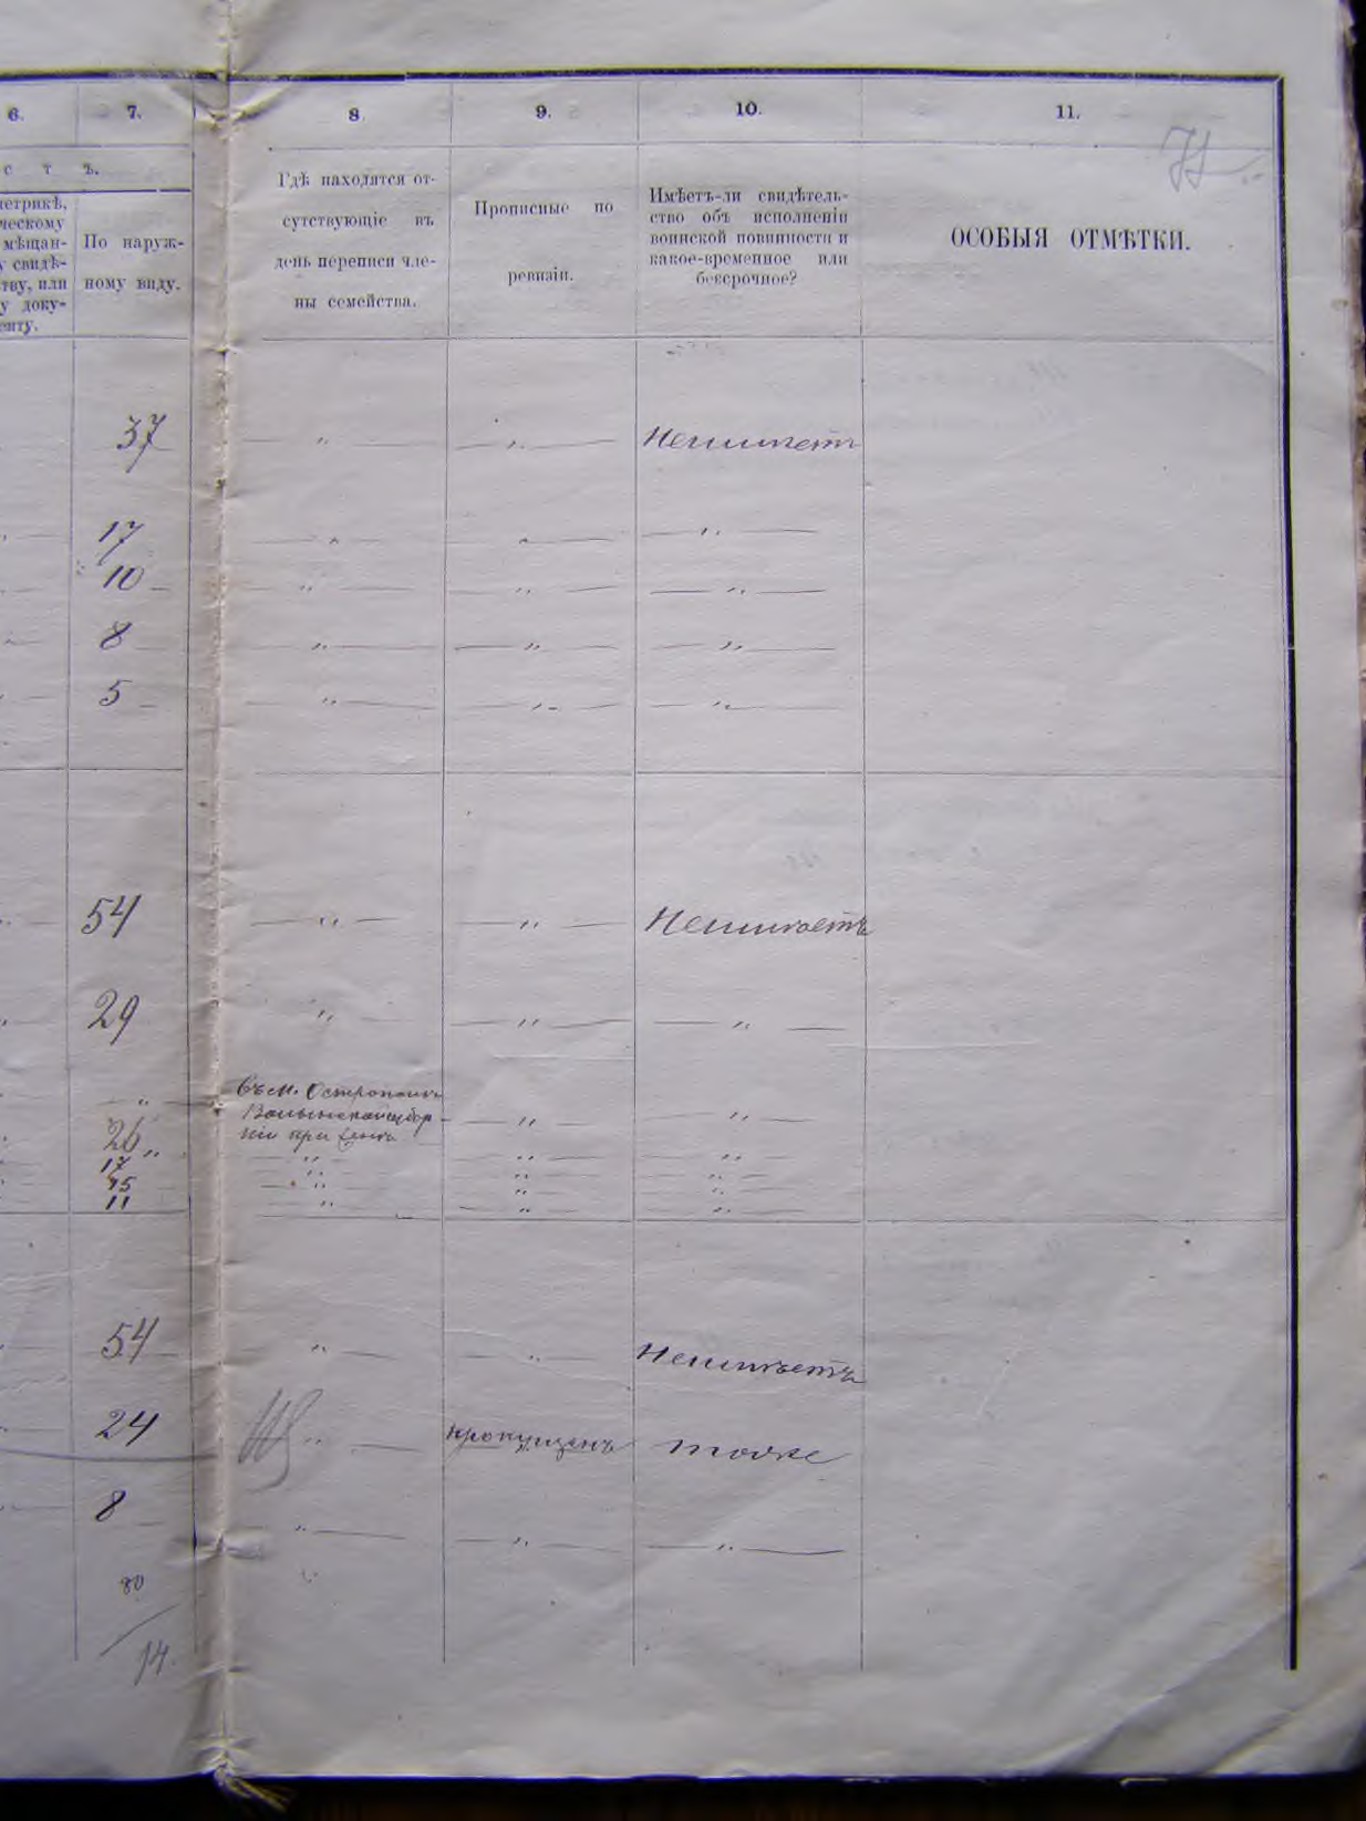 6. 7. 8. 9. 10. 11.
с т ъ.
метрикѣ,
ческому
мѣщан-
у свидѣ-
тву, или
у доку-
енту.
По наруж-
ному виду.
Гдѣ находятся от-
сутствующіе въ
день переписи чле-
ны семейства.
Прописные по
ревизіи.
Имѣетъ-ли свидѣтель-
ство объ исполненіи
воинской повинности и
какое-временное или
безсрочное?
ОСОБЫЯ ОТМѢТКИ.
37 — „ — — „ — Неимѣетъ
17 — „ — — „ — — „ —
10 — „ — — „ — — „ —
8 — „ — — „ — — „ —
5 — „ — — „ — — „ —
54 — „ — — „ — Неимѣетъ
29 „ — — „ — — „ —
„ въ м. Острополѣ
Волынской губер
ніи при — „ — „
26 „
17 — „ — — „ — — „ —
15 — „ — — „ — — „ —
11 — „ — — „ — — „ —
54 „ — — „ — Неимѣетъ
24 „ — пропущенъ тоже
8 „ — — „ — — „ —
80
14.